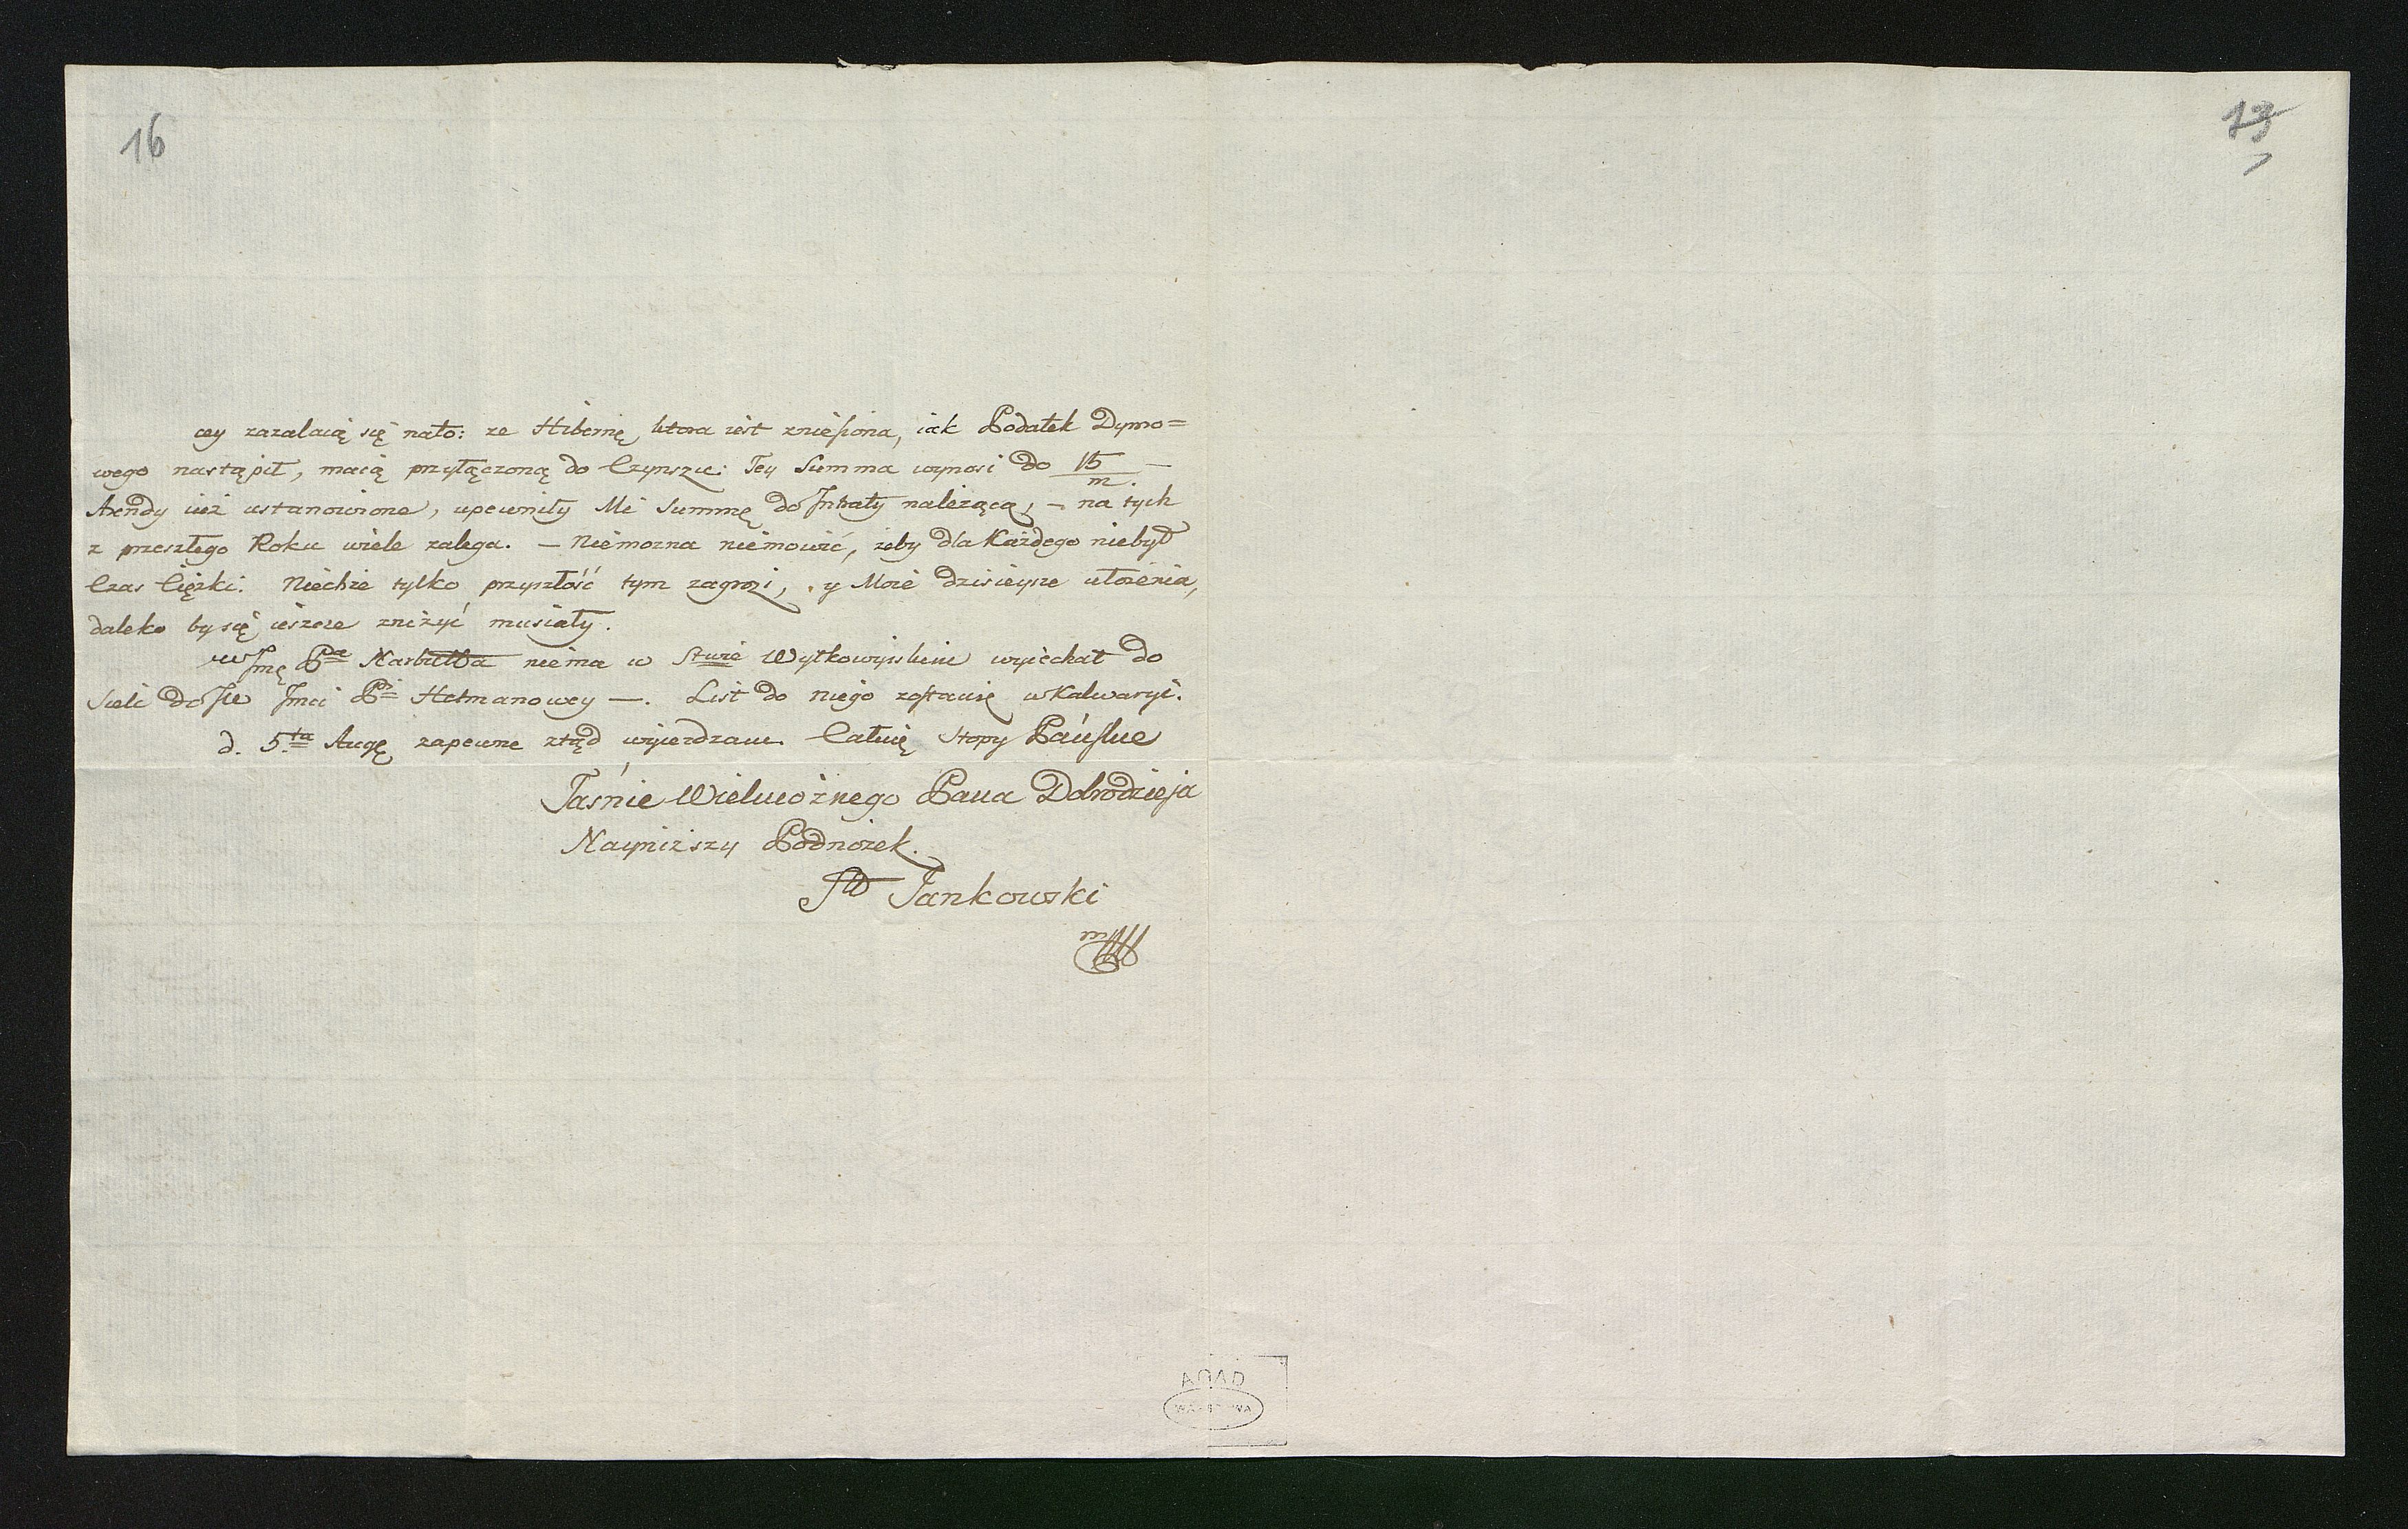 16
13
cey zazalaią się nato: ze Hibernę ktora iest znieśiona, iak Podatek Dymo=
wego nastąpił, maią przyłączoną do Czynszu: Tey Summa wynosi do 15/m. —
Arendy iuż ustanowione, upewniły Mi Summę do Intraty należącą, — na tych
z przeszłego Roku wiele zalega. — Niemozna niemowić, żeby dla Każdego niebył
Czas Ciężki. Niechże tylko przyszłość tym zagrozi, y Moie dzisieysze ułożenia,
daleko by się ieszcze zniżyć musiały.
Jmę Pa Narbutta niema w Stwie Wytkowyiskim wyiechał do
Sielc do JW Jmci Pi Hetmanowey —. List do niego zostawię w Kalwaryi.
d. 5ta Augę zapewne ztąd wyiezdzam. Całuię Stopy Pańskie
Jaśnie Wielmożnego Pana Dobrodzieja
Nayniższy Podnożek.
Jankowski
AGAD
WARSZAWA